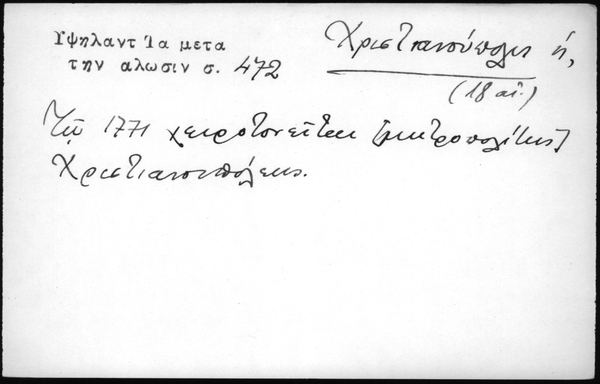 Υψηλαντ Τα μετα
την αλωσιν σ. 472
Χριστιανούπολις ἡ,
(18 αἰ.)
Τῷ 1771 χειροτονεῖται [μητροπολίτης]
Χριστιανουπόλεως.